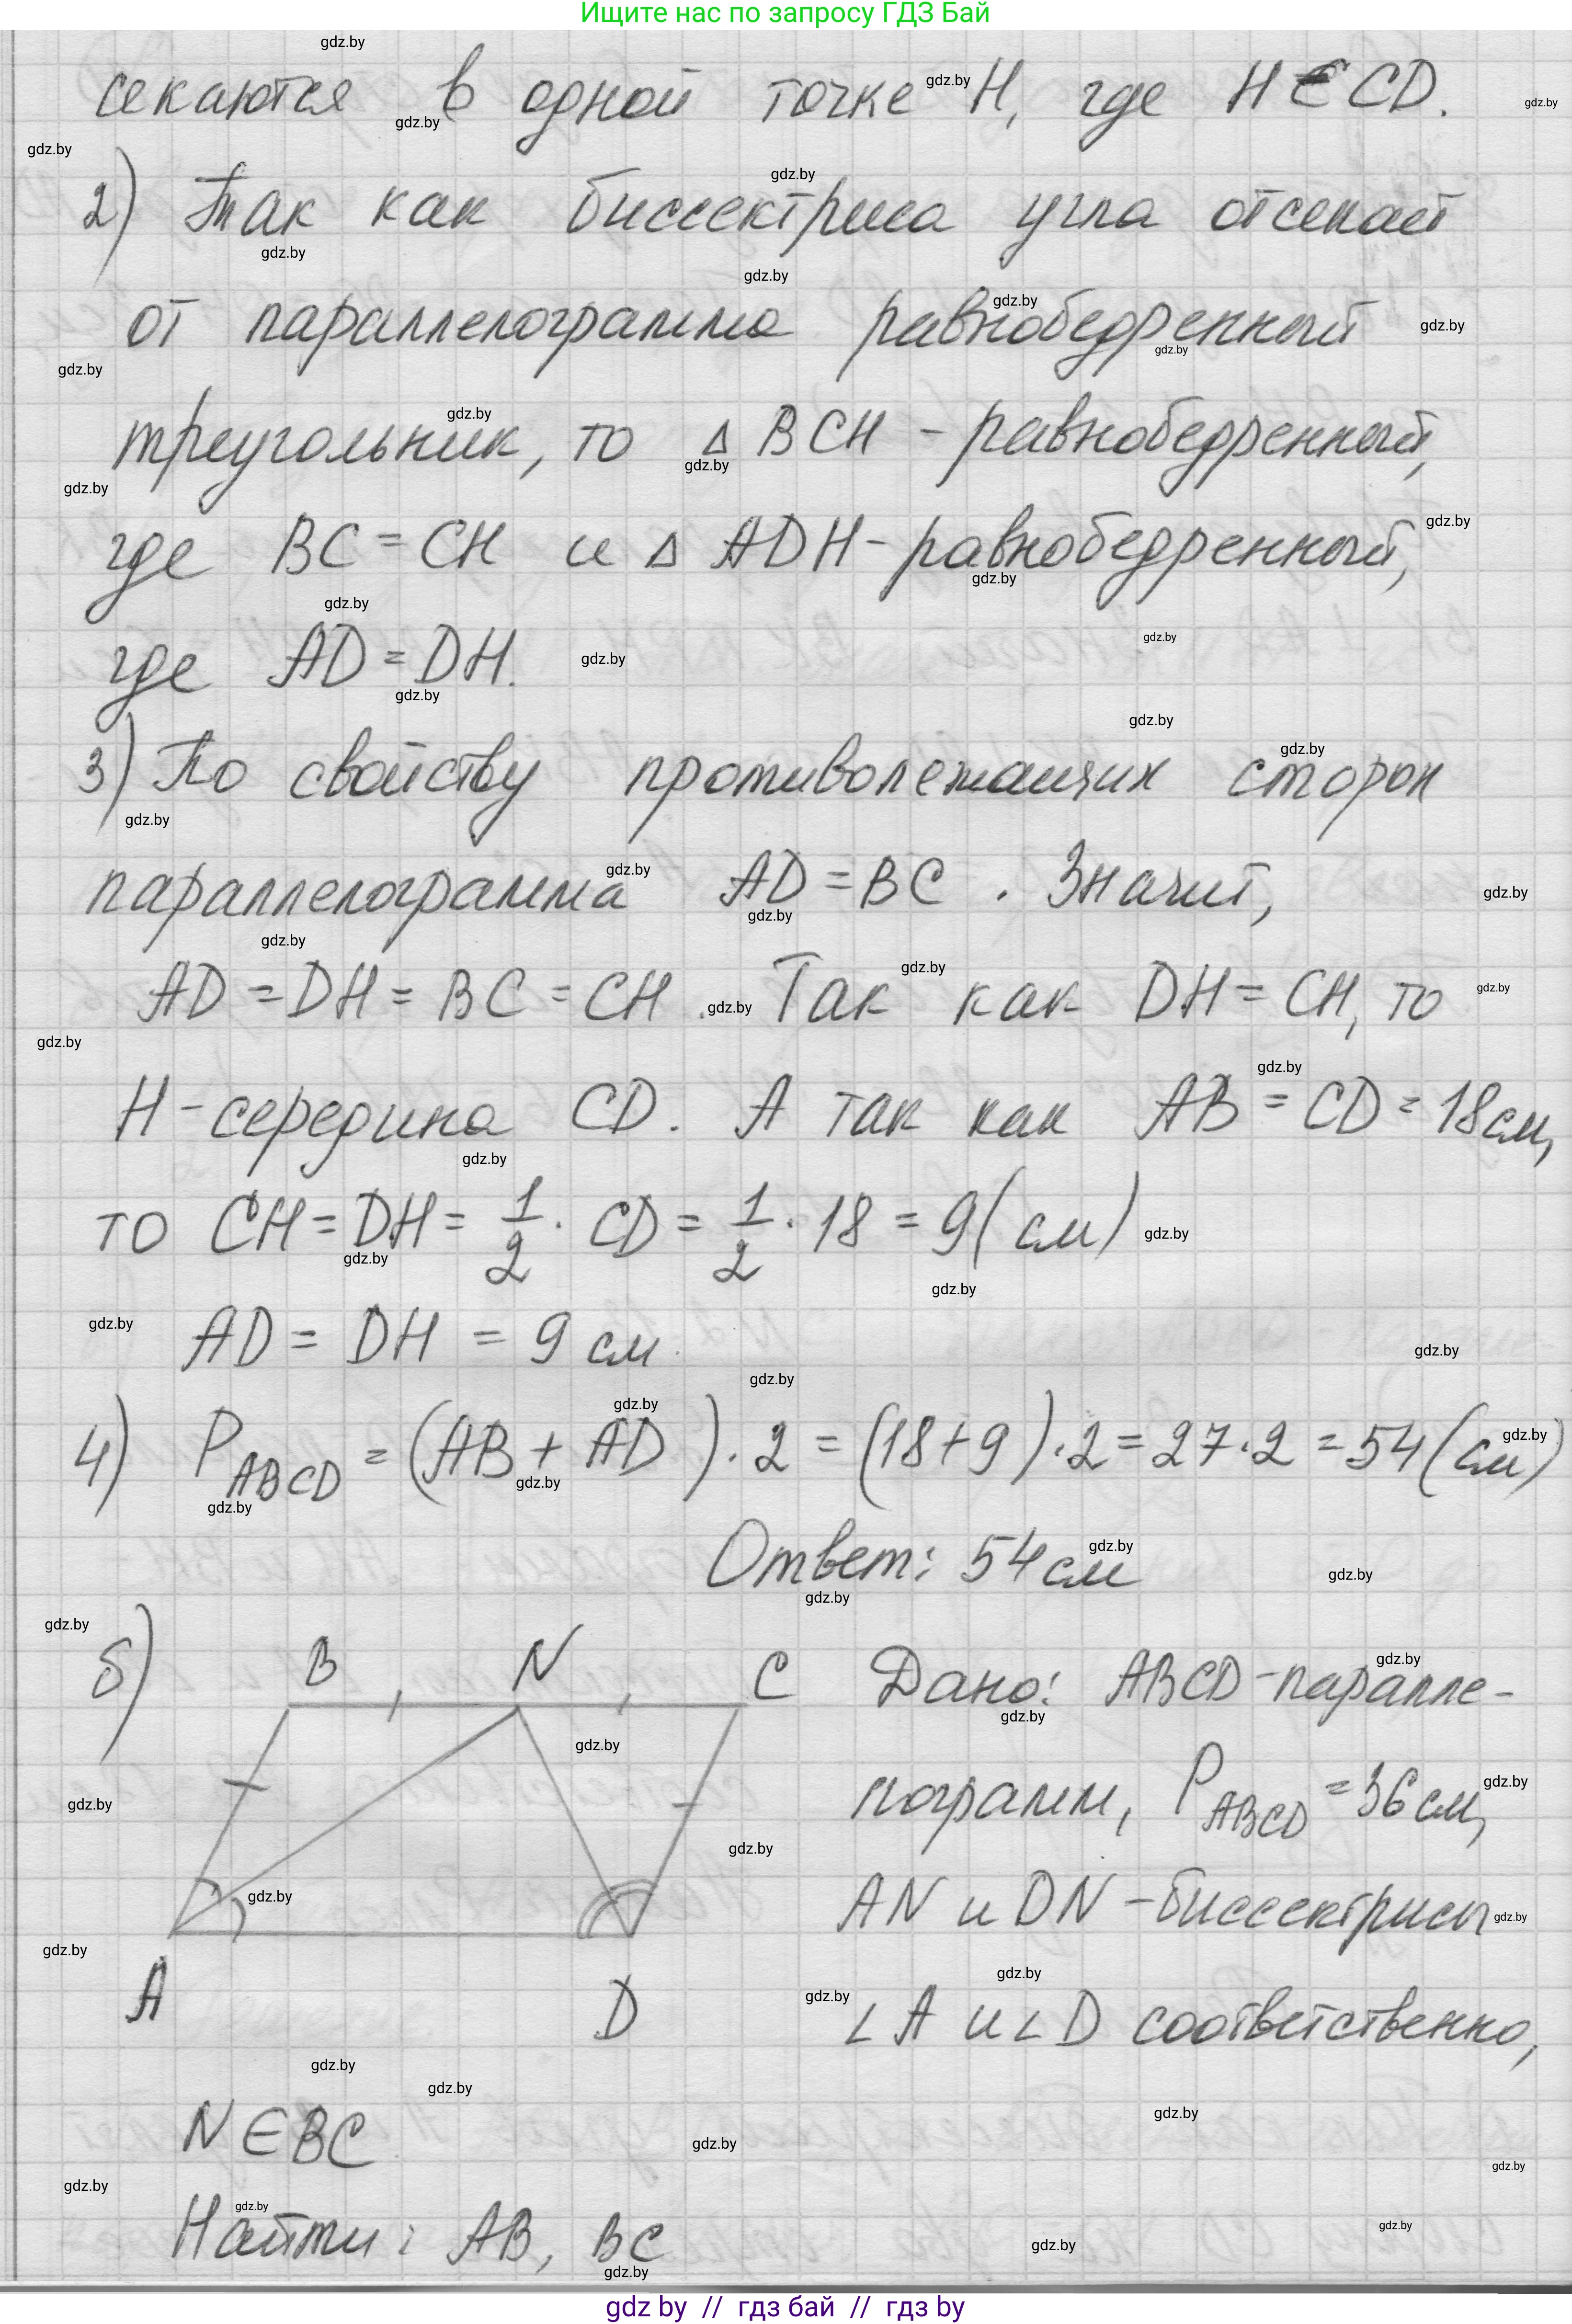 Ищите нас по запросу ГДЗ Бай
секаются в одной точке H, где H ∈ CD.
2) Так как биссектриса угла отсекает
от параллелограмма равнобедренный
треугольник, то △ BCH - равнобедренный,
где BC = CH и △ ADH - равнобедренный,
где AD = DH.
3) По свойству противолежащих сторон
параллелограмма AD = BC. Значит,
AD = DH = BC = CH. Так как DH = CH, то
H - середина CD. А так как AB = CD = 18 см,
то CH = DH = 1/2 · CD = 1/2 · 18 = 9 (см)
AD = DH = 9 см.
4) P ABCD = (AB + AD) · 2 = (18 + 9) · 2 = 27 · 2 = 54 (см)
Ответ: 54 см
б) B N C Дано: ABCD - паралле-
лограмм, P ABCD = 36 см,
AN и DN - биссектрисы
A D ∠ A и ∠ D соответственно,
N ∈ BC
Найти: AB, BC
gdz by // гдз бай // гдз by